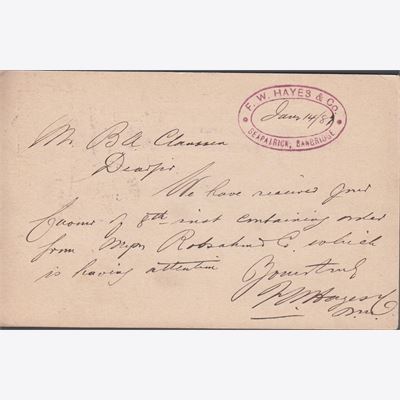 F. W. HAYES & Co.
Jany 14/8
SEAPATRICK, BANBRIDGE
Mr B A Claussen
Dear Sir
We have received your
favour of 8th inst containing order
from Messrs & Co. which
is having attention
Yours truly
F W Hayes & Co